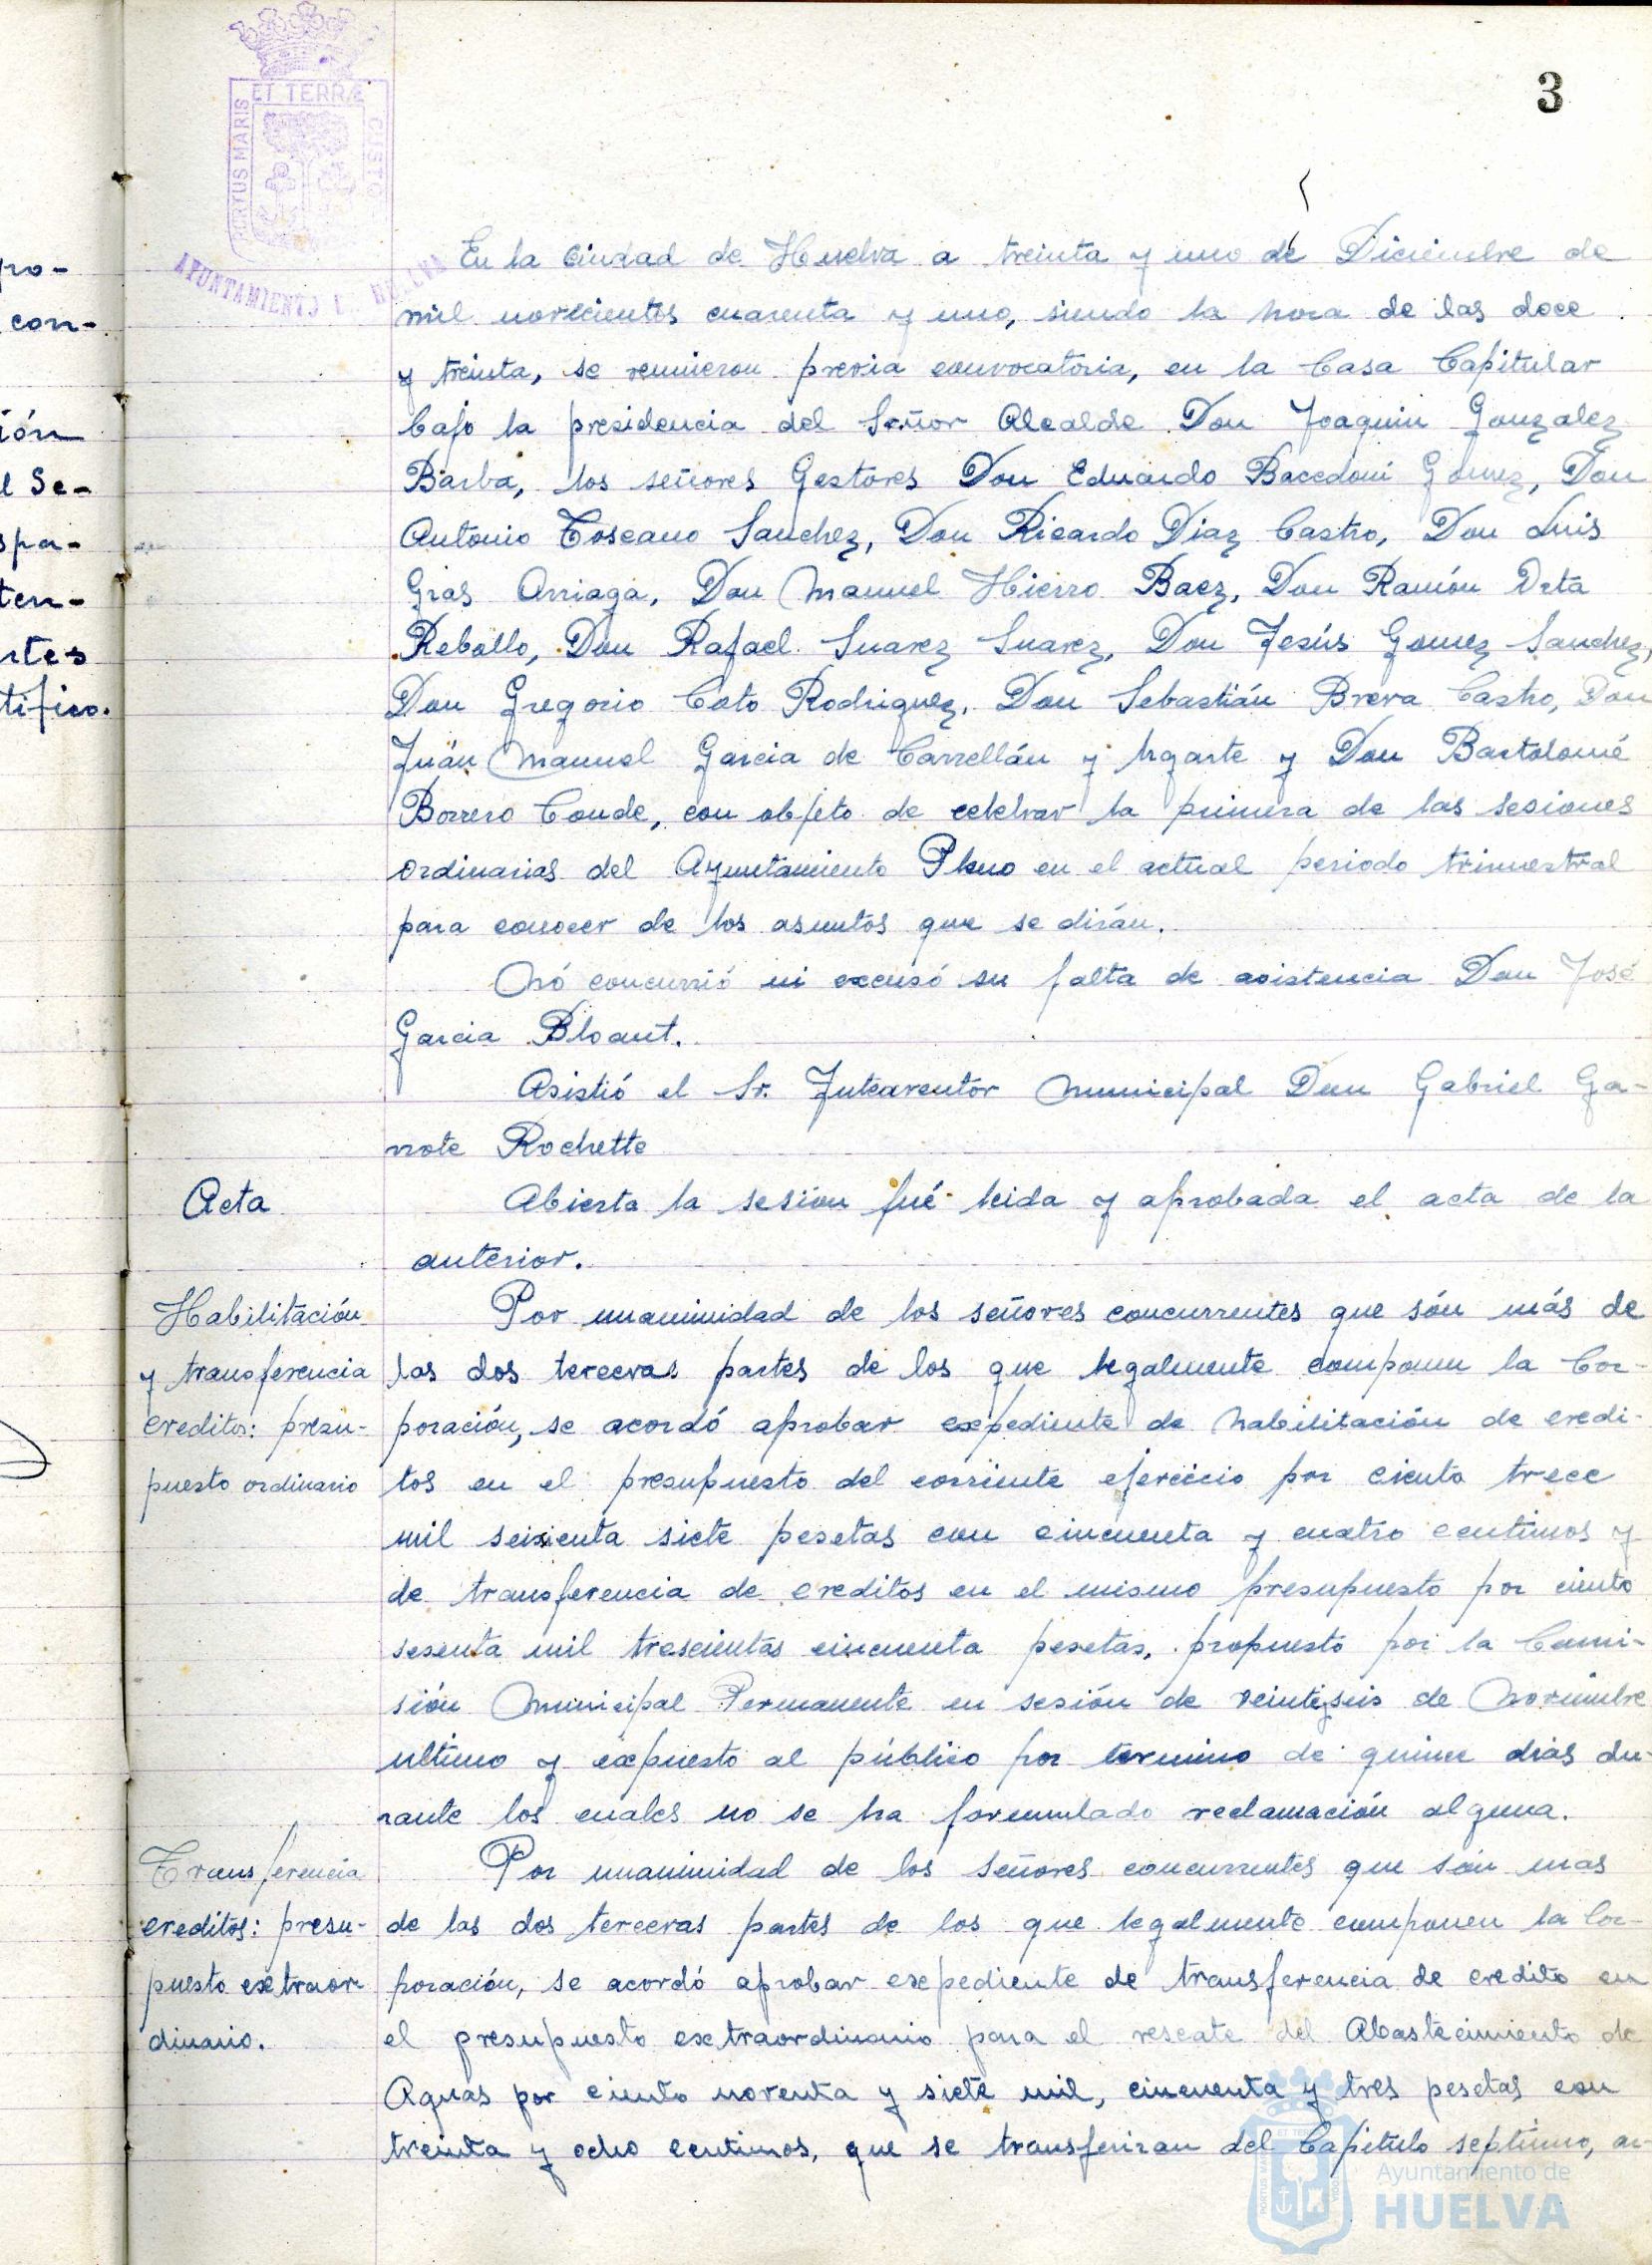 3
PORTUS MARIS
ET TERRÆ
CUSTO
AYUNTAMIENTO HUELVA
pro-
con-
ión
l Se-
spa-
ten-
rtes
tifico.
En la ciudad de Huelva a treinta y uno de Diciembre de
mil novecientos cuarenta y uno, siendo la hora de las doce
y treinta, se reunieron previa convocatoria, en la Casa Capitular
bajo la presidencia del Señor Alcalde Don Joaquin Gonzalez
Barba, los señores Gestores Don Eduardo Bacedoni Gomez, Don
Antonio Toscano Sanchez, Don Ricardo Diaz Castro, Don Luis
Gras Arriaga, Don Manuel Hierro Baez, Don Ramón Orta
Rebollo, Don Rafael Suarez Suarez, Don Jesús Gomez Sanchez,
Don Gregorio Coto Rodriguez, Don Sebastián Breva Castro, Don
Juán Manuel Garcia de Carrellán y Ugarte y Don Bartolomé
Borrero Conde, con objeto de celebrar la primera de las sesiones
ordinarias del Ayuntamiento Pleno en el actual periodo trimestral
para conocer de los asuntos que se dirán.
Nó concurrió ni excusó su falta de asistencia Don José
Garcia Bloant.
Asistió el Sr. Interventór Municipal Don Gabriel Ga-
rrote Rochette
Acta
Abierta la sesión fué leida y aprobada el acta de la
anterior.
Habilitación
y transferencia
creditos: presu-
puesto ordinario
Por unanimidad de los señores concurrentes que són más de
las dos terceras partes de los que legalmente componen la Cor-
poración, se acordó aprobar expediente de habilitación de credi-
tos en el presupuesto del corriente ejercicio por ciento trece
mil seisienta siete pesetas con cincuenta y cuatro centimos y
de transferencia de creditos en el mismo presupuesto por ciento
sesenta mil trescientas cincuenta pesetas, propuesto por la Comi-
sión Municipal Permanente en sesión de veintiseis de Noviembre
ultimo y expuesto al público por termino de quince dias du-
rante los cuales no se ha formulado reclamación alguna.
Transferencia
creditos: presu-
puesto extraor
dinario.
Por unanimidad de los señores concurrentes que són mas
de las dos terceras partes de los que legalmente componen la Cor-
poración, se acordó aprobar expediente de transferencia de credito en
el presupuesto extraordinario para el rescate del Abastecimiento de
Aguas por ciento noventa y siete mil, cincuenta y tres pesetas con
treinta y ocho centimos, que se transferiran del Capitulo septimo, ar-
Ayuntamiento de
HUELVA